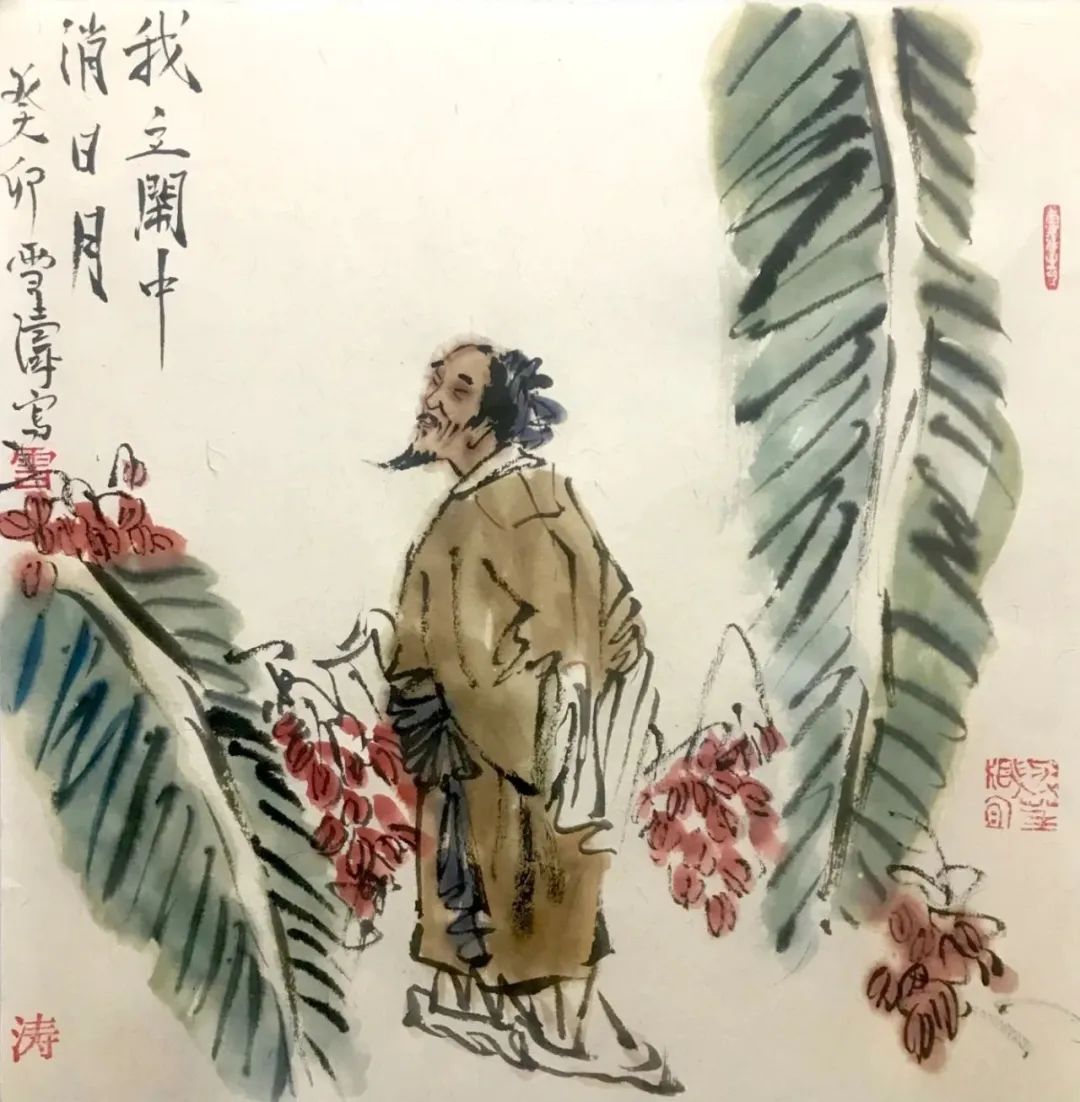 我立閑中
消日月
癸卯雪濤寫
雪
涛